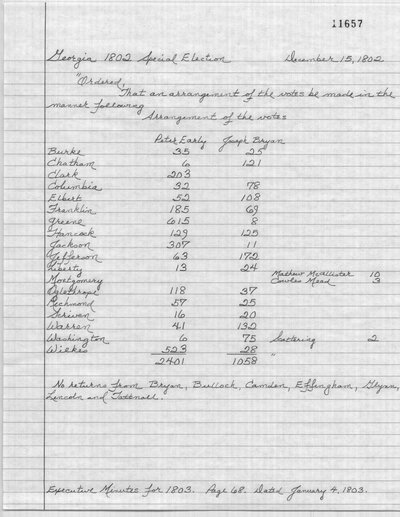 11657
Georgia 1802 Special Election December 15, 1802
"Ordered,
That an arrangement of the votes be made in the
manner following
Arrangement of the votes
Peter Early Joseph Bryan
Burke 35 25
Chatham 6 121
Clark 203
Columbia 32 78
Elbert 52 108
Franklin 185 69
Greene 615 8
Hancock 129 125
Jackson 307 11
Jefferson 63 172
Liberty 13 24
Mathew McAllister 10
Montgomery Cowles Mead 3
Oglethrope 118 37
Richmond 57 25
Scriven 16 20
Warren 41 132
Washington 6 75 Scattering 2
Wilkes 523 28
2401 1058 "
No returns from Bryan, Bulloch, Camden, Effingham, Glynn,
Lincoln and Tattnall.
Executive Minutes for 1803. Page 68. Dated January 4, 1803.